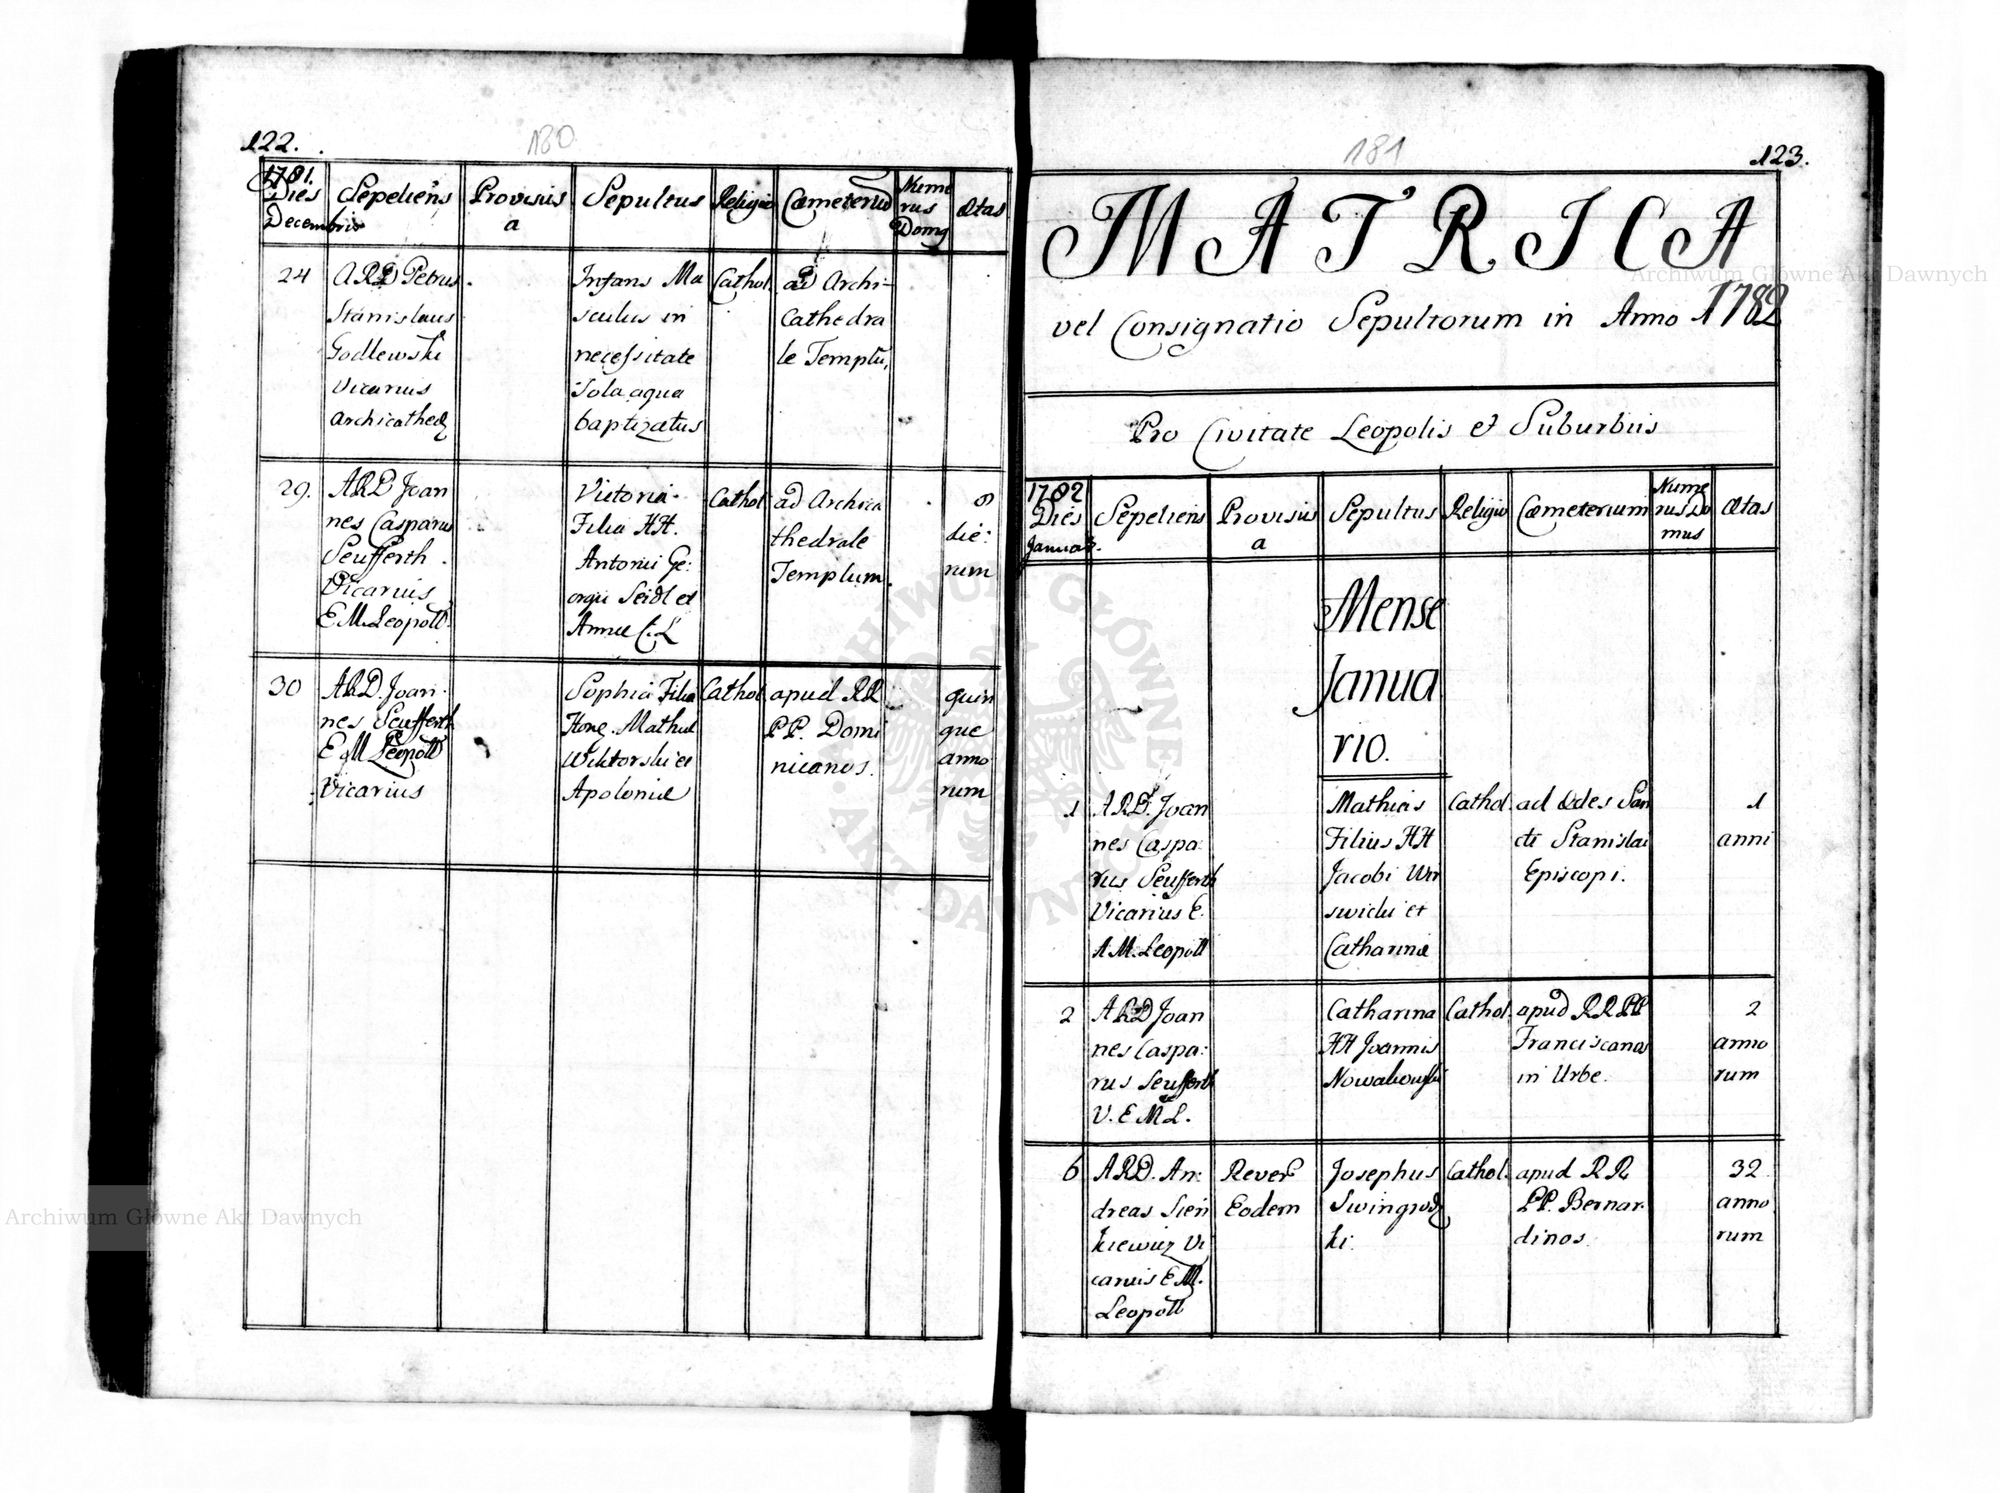 122.
180
1781.
Dies
Decembris
Sepeliens
Provisus
a
Sepultus
Religio
Cœmeteriū
Nume
rus
Domq
Ætas
24
A R D Petrus
Stanislaus
Godlewski
Vicarius
Archicathed
Infans Ma
sculus in
necessitate
Sola aqua
baptizatus
Cathol.
ad Archi-
Cathedra
le Templū,
29.
A R D Joan
nes Casparus
Seufferth
Vicarius
E.M. Leopoll.
Victoria
Filia HH.
Antonii Ge:
orgii Seidl et
Annæ C. L
Cathol
ad Archica
thedrale
Templum.
8
die:
rum
30
A R D. Joan-
nes Seufferth
E M Leopoll
Vicarius
Sophia Filia
Hon. Mathiæ
Wiktorski et
Apoloniæ
Cathol.
apud RR
PP. Domi
nicanos.
quin
que
anno
rum
181
123.
MATRICA
vel Consignatio Sepultorum in Anno 1782
Pro Civitate Leopolis et Suburbiis
1782
Dies
Januar.
Sepeliens
Provisus
a
Sepultus
Religio
Cœmeterium
Nume
rus Do
mus
Ætas
Mense
Janua
rio.
1
A R D. Joan
nes Caspa:
rus Seufferth
Vicarius E.
A M. Leopoll
Mathias
Filius HH
Jacobi Wir
swicki et
Catharinæ
Cathol.
ad Ædes San
cti Stanislai
Episcopi.
1
anni
2
A R D Joan
nes Caspa:
rus Seufferth
V. E M L.
Catharina
HH Joannis
Nowakowski
Cathol.
apud RR PP
Franciscanos
in Urbe.
2
anno
rum
6
A R D. An:
dreas Sien
kiewicz Vi
carius E M.
Leopoll
Rever
Eodem
Josephus
Swingrodz
ki.
Cathol.
apud RR
PP. Bernar
dinos.
32
anno
rum
Archiwum Główne Akt Dawnych
Archiwum Główne Akt Dawnych
ARCHIWUM GŁÓWNE AKT DAWNYCH